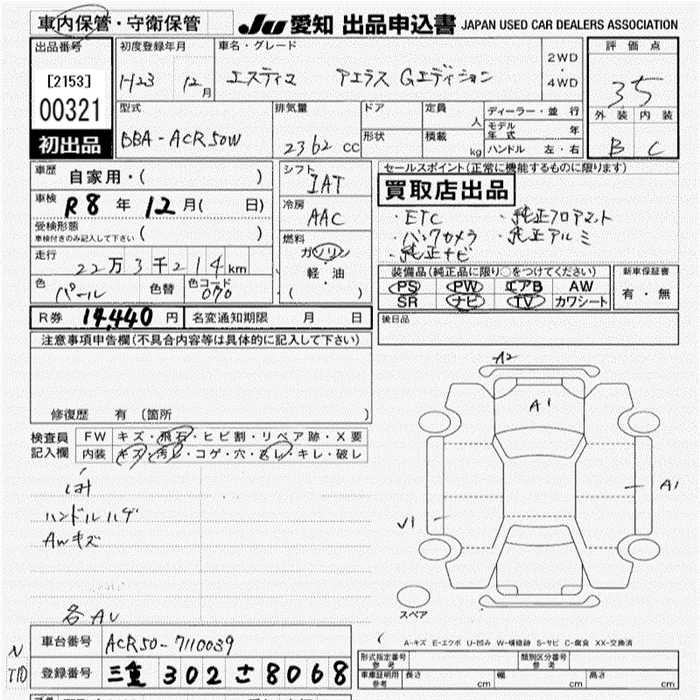 車内保管・守衛保管
JU 愛知 出品申込書 JAPAN USED CAR DEALERS ASSOCIATION
出品番号
[2153]
00321
初出品
初度登録年月
H23 12月
車名・グレード
エスティマ アエラス Gエディション
2WD
・
4WD
評価点
35
外装 内装
B C
型式
DBA-ACR50W
排気量
2362 cc
ドア
形状
定員
人
積載
kg
ディーラー・並行
モデル年式 年
ハンドル 左・右
車歴
自家用・( )
車検 R8年 12月( 日)
受検形態
車検付きのみ記入して下さい ( )
走行
22万3千214km
色
パール
色替
色コード
070
R券 14,440円
名変通知期限 月 日
シフト
IAT
冷房
AAC
燃料
ガソリン
・
軽・油
( )
セールスポイント(正常に機能するものに限ります)
買取店出品
・ETC ・純正フロアマット
・バックカメラ ・純正アルミ
・純正ナビ
装備品(純正品に限り○をつけてください)
PS PW エアB AW
SR ナビ TV カワシート
新車保証書
有・無
後日品
注意事項申告欄(不具合内容等は具体的に記入して下さい)
修復歴 有 (箇所 )
検査員記入欄
FW キズ・飛石・ヒビ割・リペア跡・X要
内装 キズ・汚レ・コゲ・穴・スレ・キレ・破レ
ハンドルハゲ
AWキズ
各AU
A2
A1
A1
V1
スペア
A-キズ E-エクボ U-凹み W-補修跡 S-サビ C-腐食 XX-交換済
車台番号 ACR50-7110039
登録番号 三重 302 さ 8068
型式指定番号
参考
類別区分番号
参考
車庫証明用
参考
長さ cm
幅 cm
高さ cm